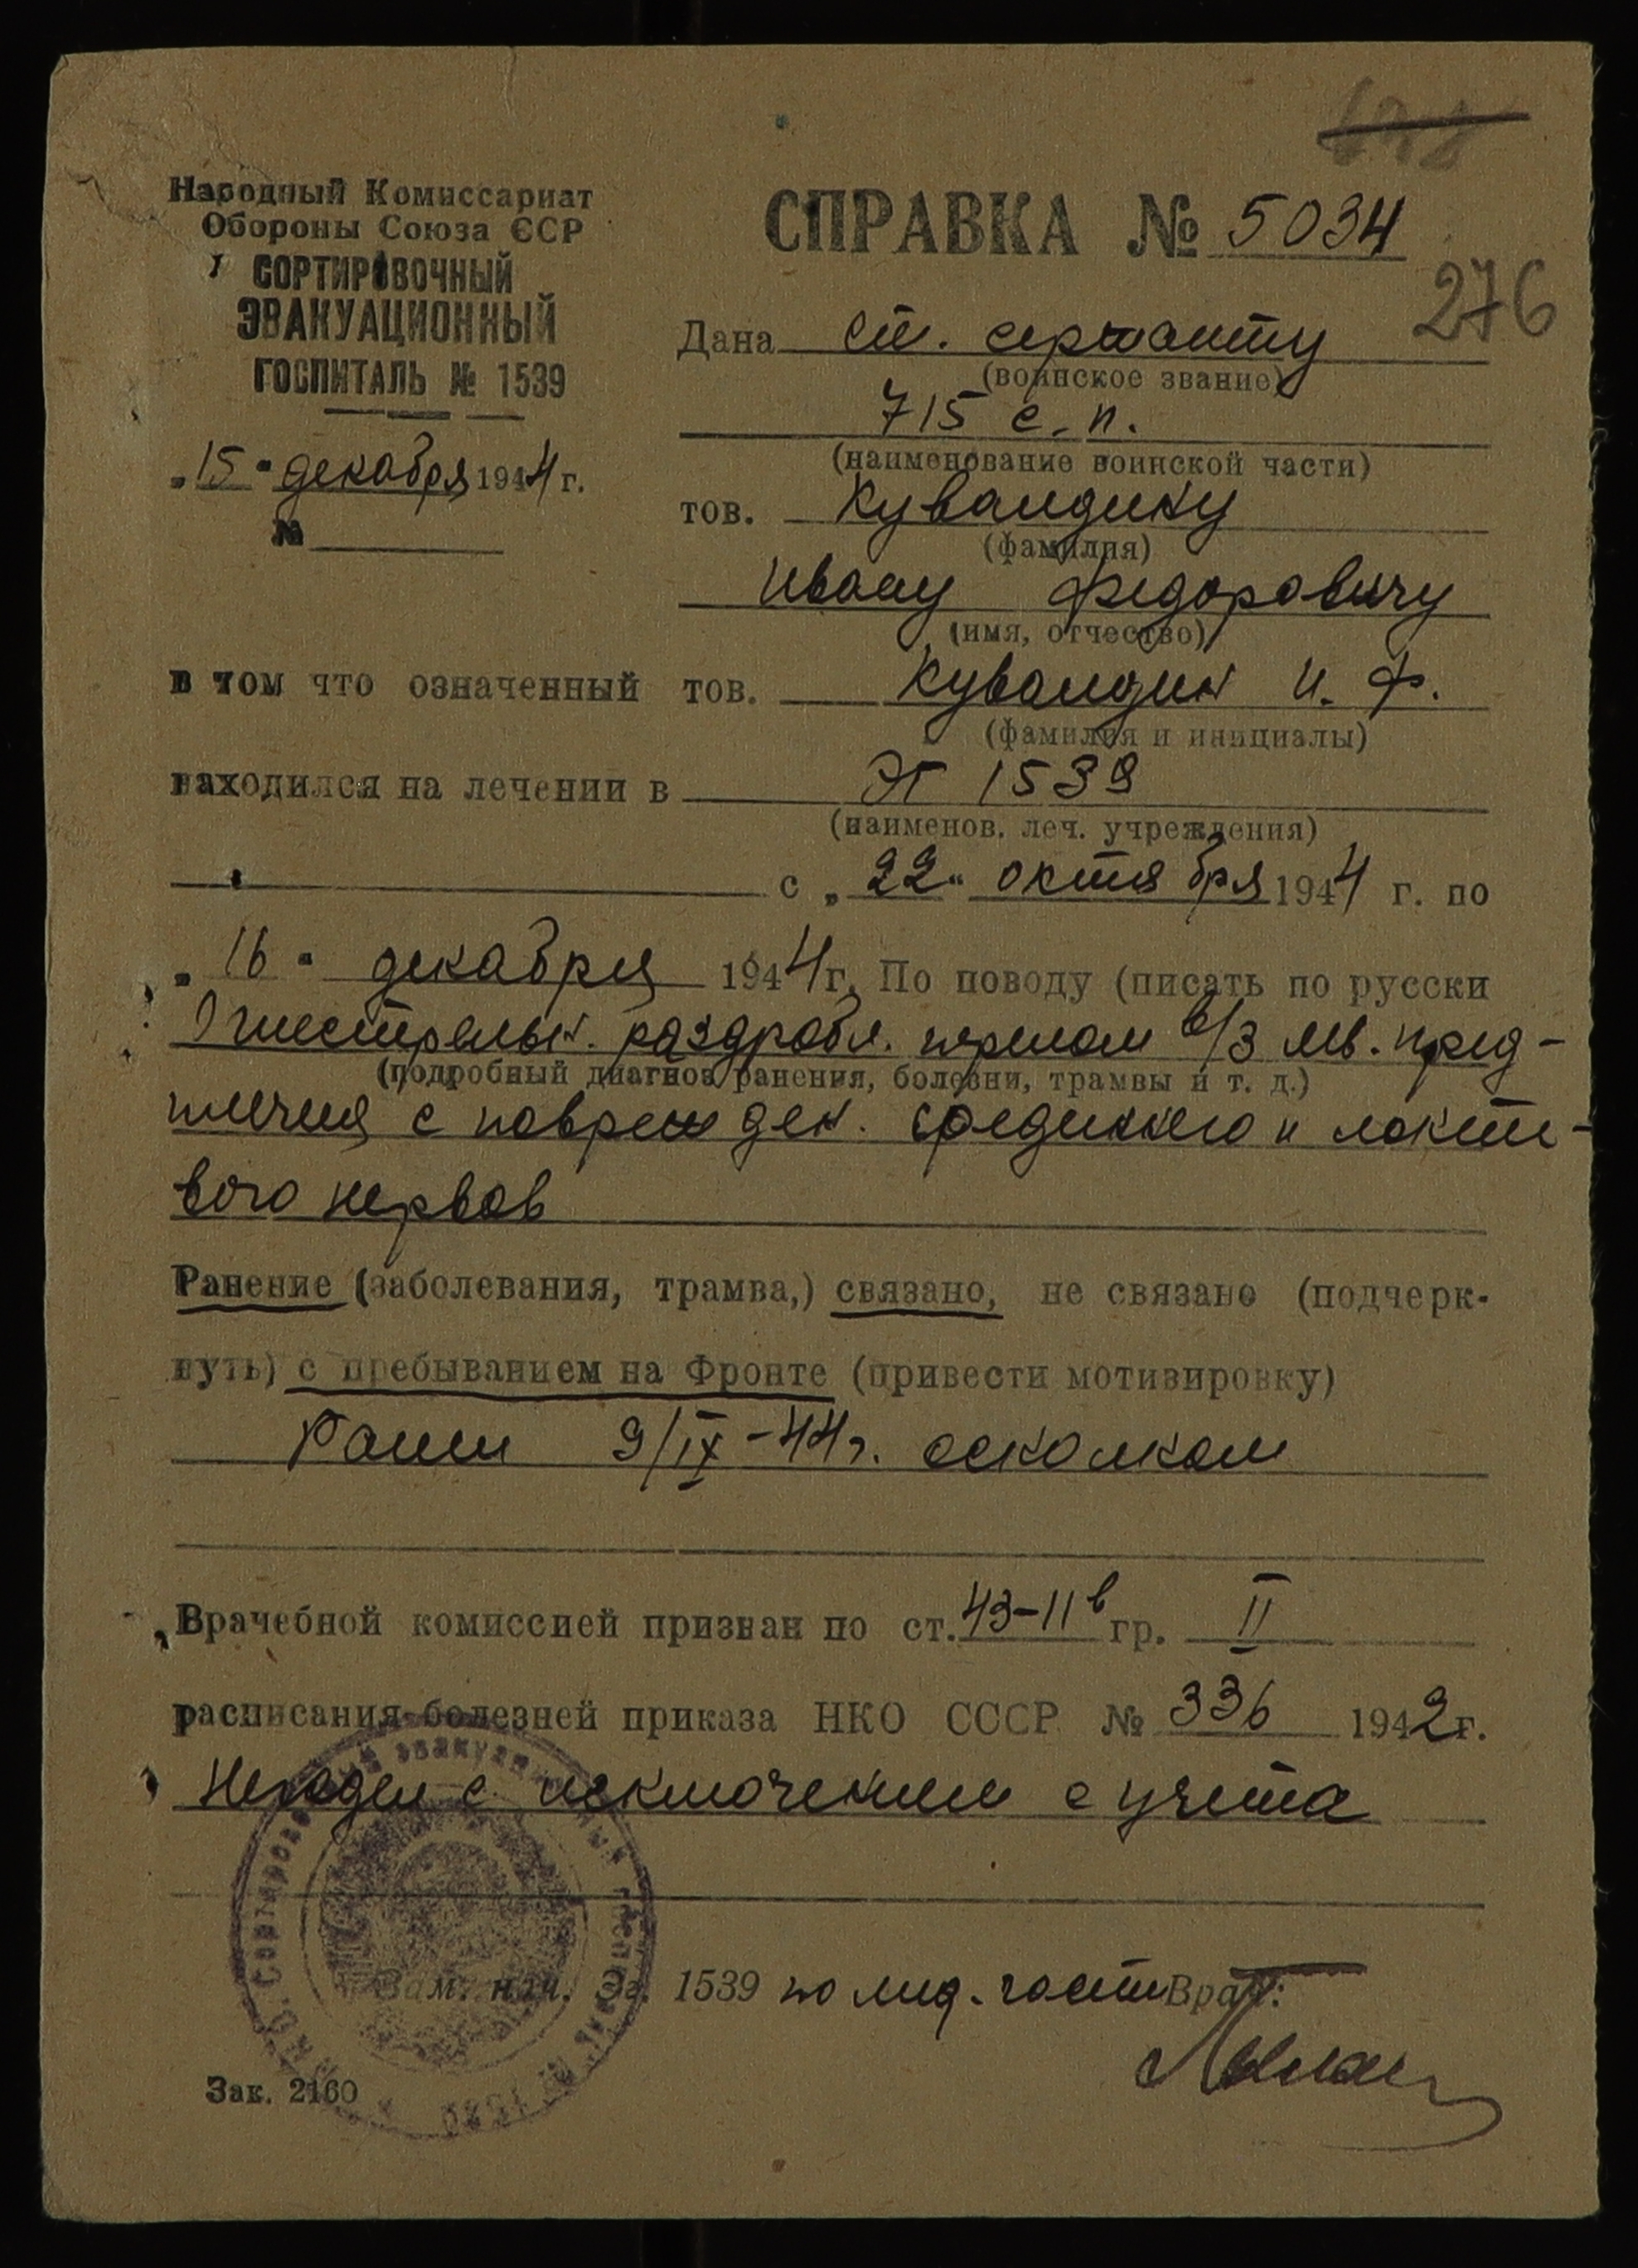 Народный Комиссариат
Обороны Союза ССР
СОРТИРОВОЧНЫЙ
ЭВАКУАЦИОННЫЙ
ГОСПИТАЛЬ № 1539
„15" декабря 1944 г.
№
СПРАВКА № 5034
276
Дана ст. сержанту
(воинское звание)
715 с. п.
(наименование воинской части)
тов. Кувандику
(фамилия)
Ивану Федоровичу
(имя, отчество)
в том что означенный тов. Кувандик И. Ф.
(фамилия и инициалы)
находился на лечении в ЭГ 1539
(наименов. леч. учреждения)
с „22" октября 1944 г. по
„16" декабря 1944 г. По поводу (писать по русски
Огнестрельн. раздробл. перелом в/3 лев. пред-
(подробный диагноз ранения, болезни, трамвы и т. д.)
плечия с поврежден. срединного и локте-
вого нервов
Ранение (заболевания, трамва,) связано, не связано (подчерк-
нуть) с пребыванием на Фронте (привести мотивировку)
Ранен 9/IX-44г. осколком
Врачебной комиссией признан по ст. 43-II в гр. II
расписания болезней приказа НКО СССР № 336 1942г.
Негоден с исключением с учета
Зам. нач. Эг. 1539 по мед. части Врач:
Зак. 2160